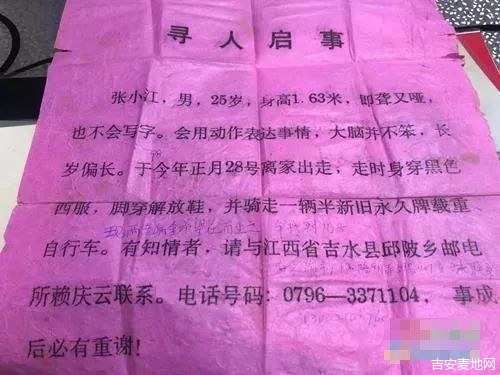 寻人启事
张小江，男，25岁，身高1.63米，即聋又哑，
也不会写字。会用动作表达事情，大脑并不笨，长
岁偏长。于今年正月28号离家出走，走时身穿黑色
西服，脚穿解放鞋，并骑走一辆半新旧永久牌载重
自行车。有知情者，请与江西省吉水县邱陂乡邮电
所赖庆云联系。电话号码：0796—3371104，事成
后必有重谢！
吉安麦地网